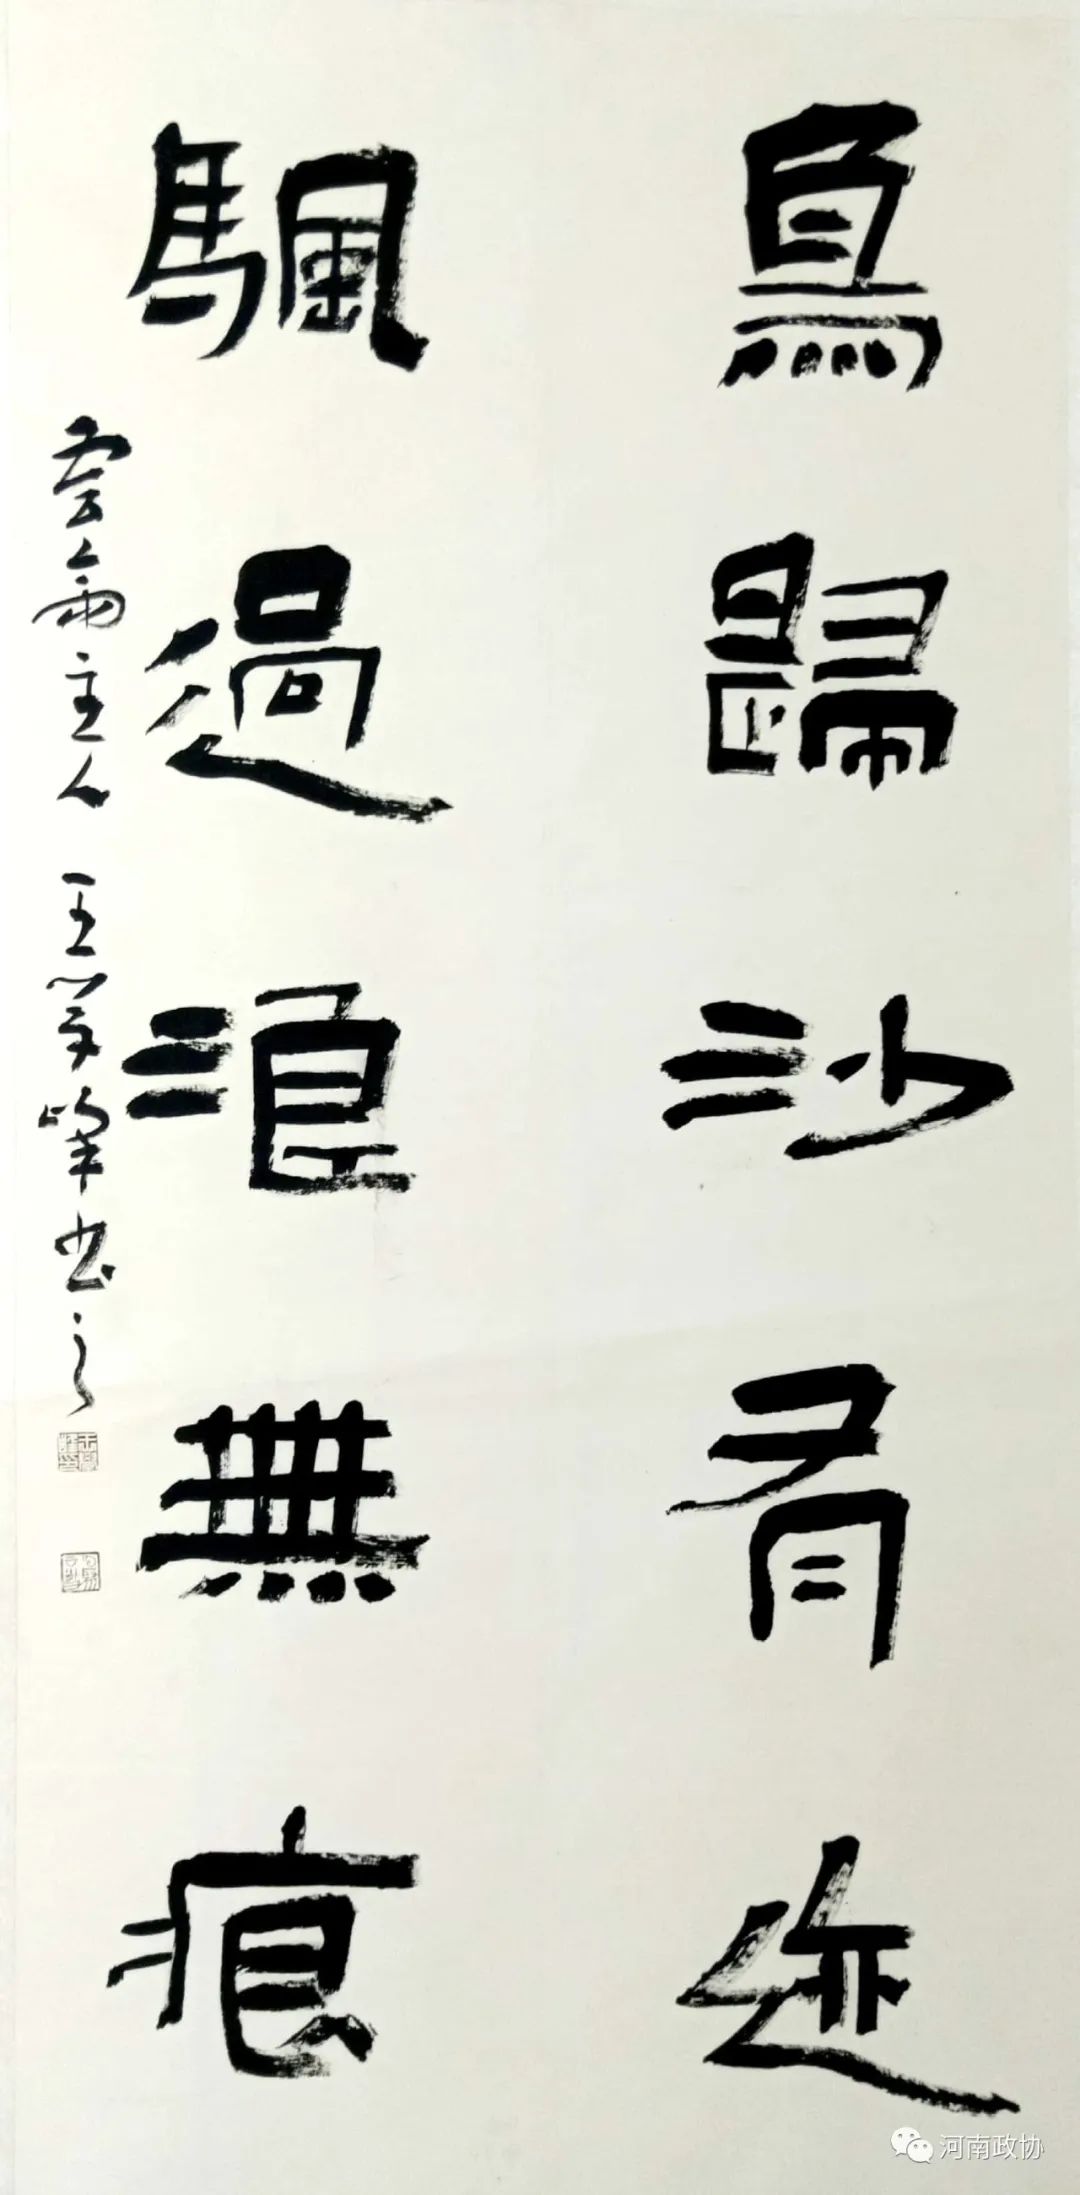 鳥歸沙有迹
颿過浪無痕
雲 主人 王学峰书之
河南政协